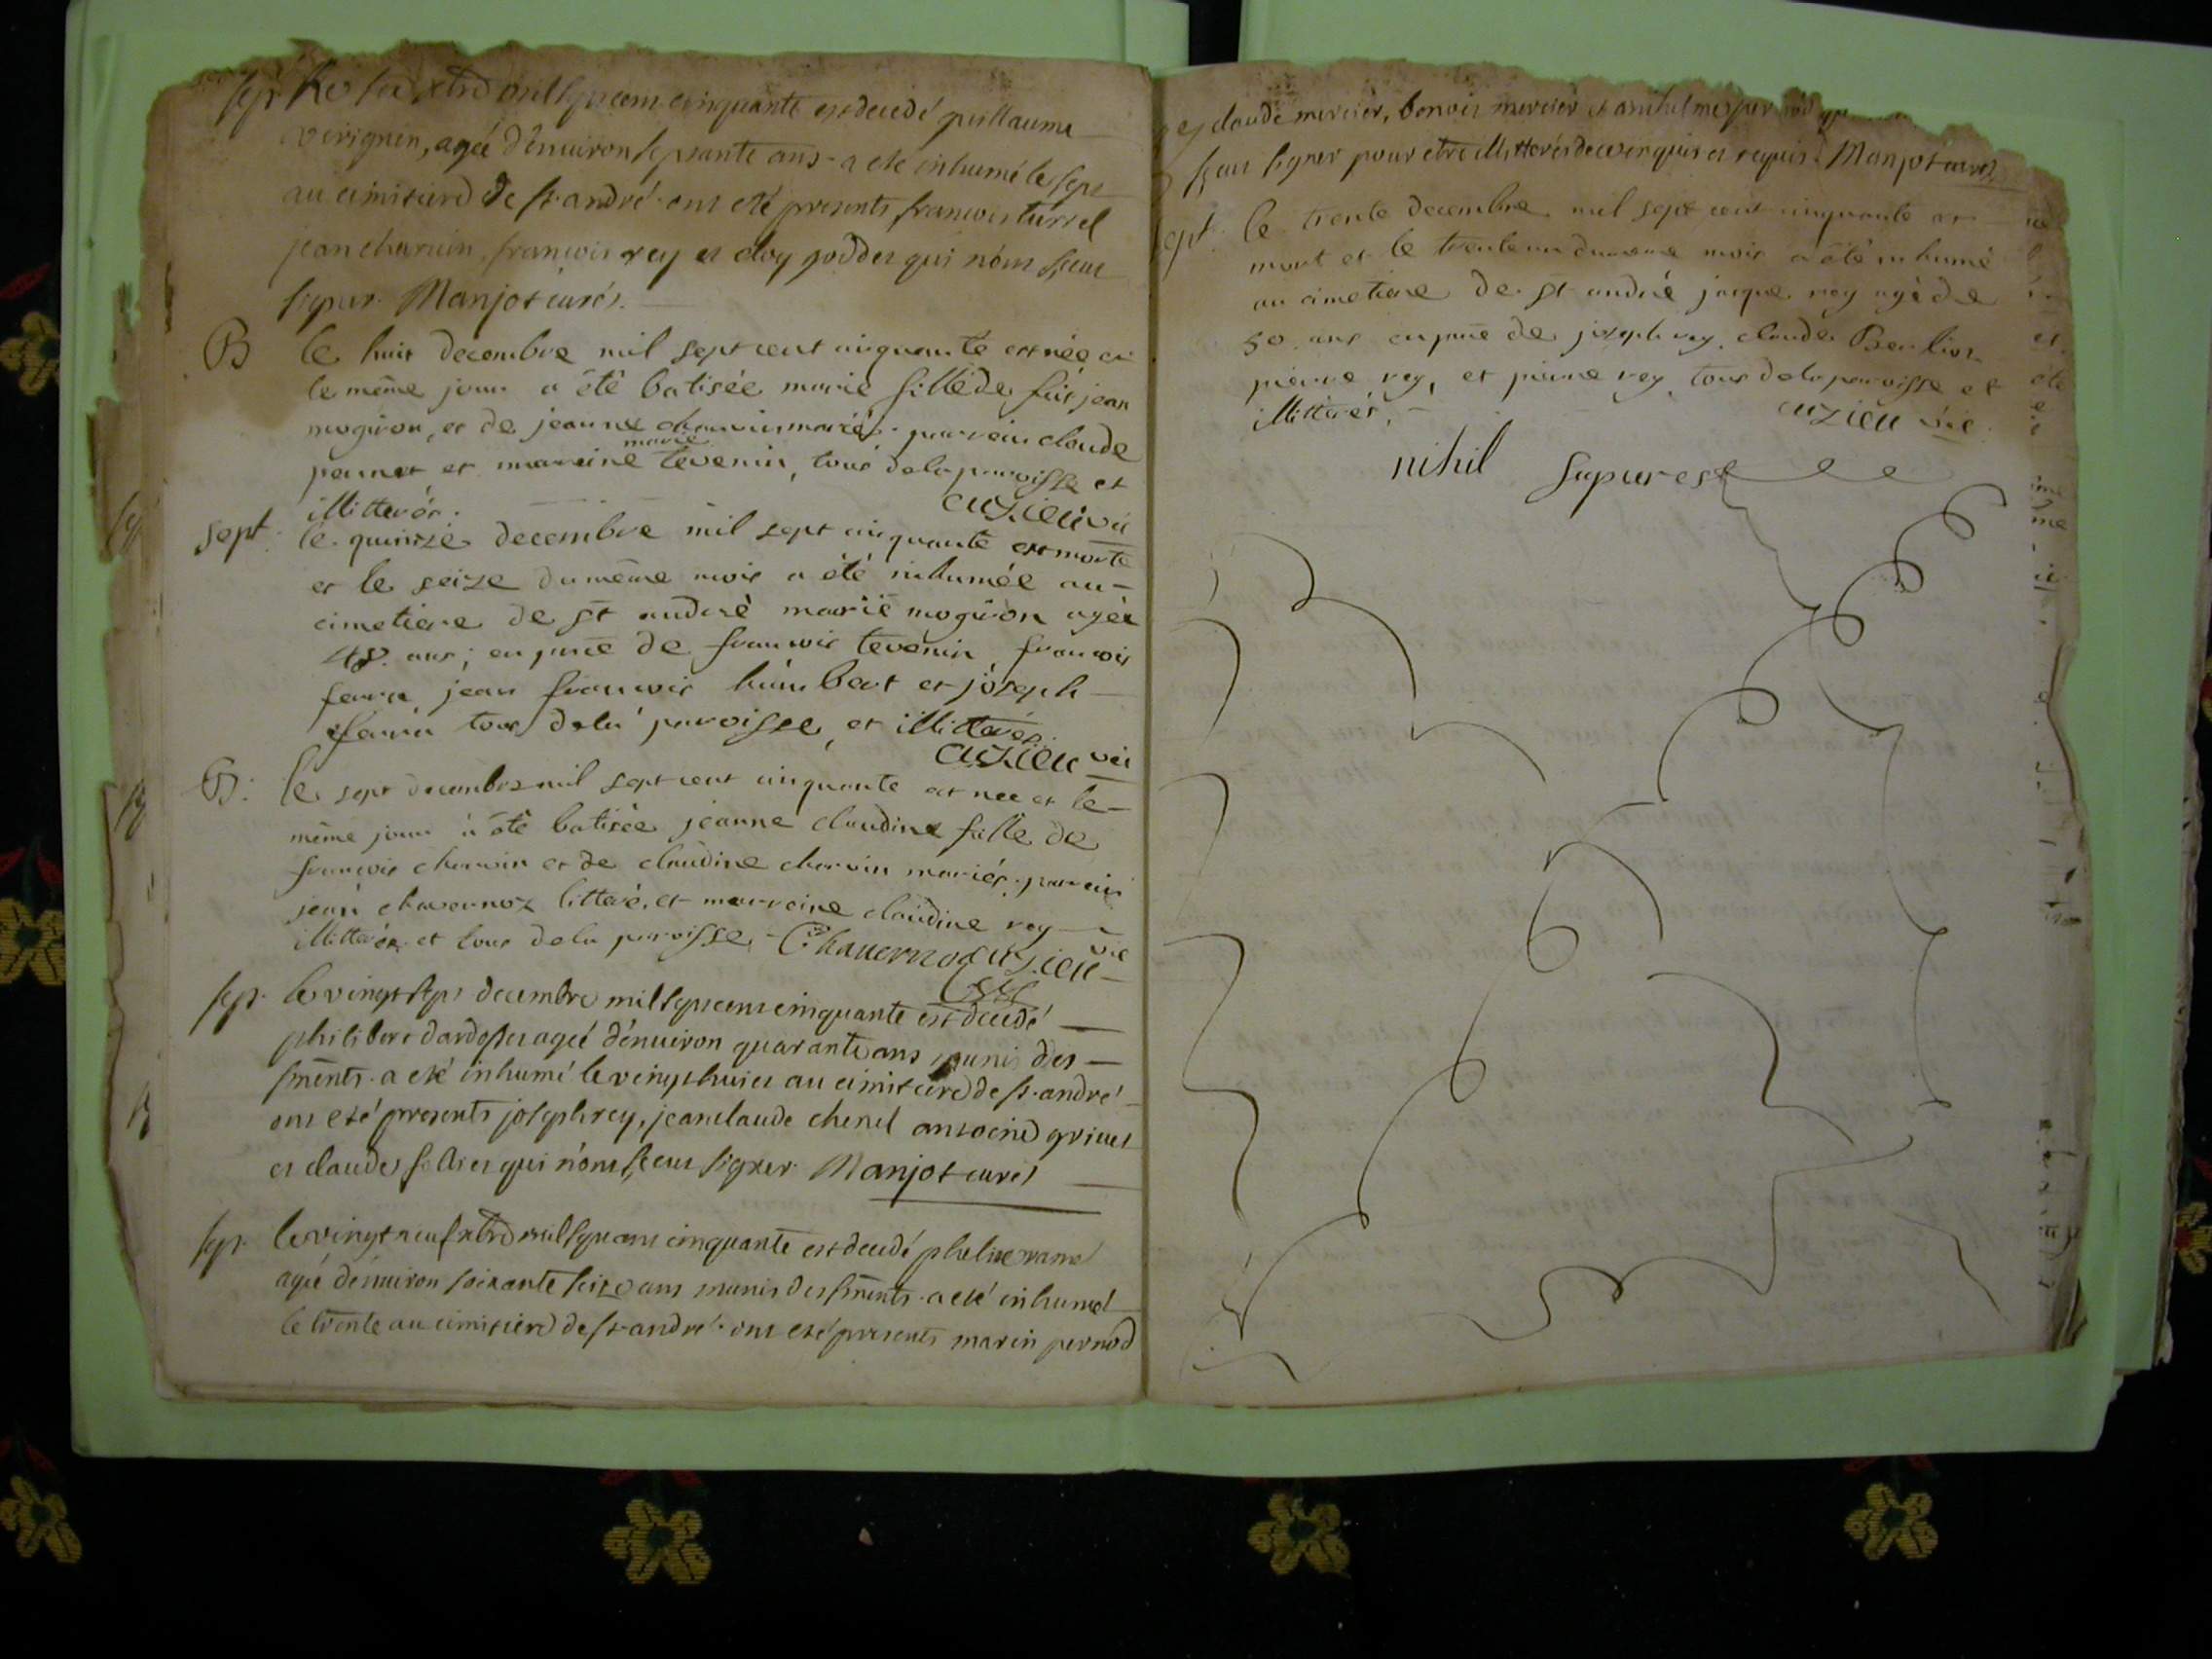 sept. le six xbre mil sept cens cinquante est decedé guillaume
verignin, agé d'environ septante ans - a eté inhumé le sept
au cimitiere de st. andré. ont eté presents francois turrel
jean charvin, francois rey et eloy goddet qui n'ont sceu
signer. Manjot curé.
B le huit decembre mil sept cent cinquante est née et
le même jour a été batisée marie fille de feu jean
mogiron, et de jeanne charvin mariés. parrein claude
pernet et marreine marie tevenin, tous de la paroisse et
illitterés. auzieu vic
sept. le quinze decembre mil sept cinquante est morte
et le seize du même mois a été inhumée au
cimetiere de st andré marie mogiron agée
48. ans; en pnce de francois tevenin francois
ferra, jean francois humbert et joseph
ferra tous de la paroisse, et illitterés.
auzieu vic
B. le sept decembre mil sept cent cinquante est née et le
même jour a été batisée jeanne claudine fille de
francois charvin et de claudine charvin mariés. parrein
jean chavernoz litteré, et marreine claudine rey
illitterée et tous de la paroisse - Chavernoz auzieu vic
sept. le vingt sept decembre mil sept cens cinquante est decedé
philibert dardoset agé d'environ quarante ans munis des
sments. a eté inhumé le vingt huit au cimitiere de st. andré
ont eté presents joseph rey, jean claude chenel antoine grivet
et claude sollier qui n'ont sceu signer. Manjot curé
sept. le vingt neuf xbre mil sept cens cinquante est decedé
agé d'environ soixante seize ans munis des sments. a eté inhumé
le trente au cimitiere de st. andré. ont eté presents marin pernod
claude mercier, benoit mercier et
sceu signer pour etre illitterés de ce enquis et requis. Manjot curé
sept. le trente decembre mil sept cent cinquante est
mort et le trente un du meme mois a été inhumé
au cimetiere de st andré jacque rey agé de
50. ans en pnce de joseph rey, claude Berlioz
pierre rey, et pierre rey tous de la paroisse et
illitterés. auzieu vic
nihil superest